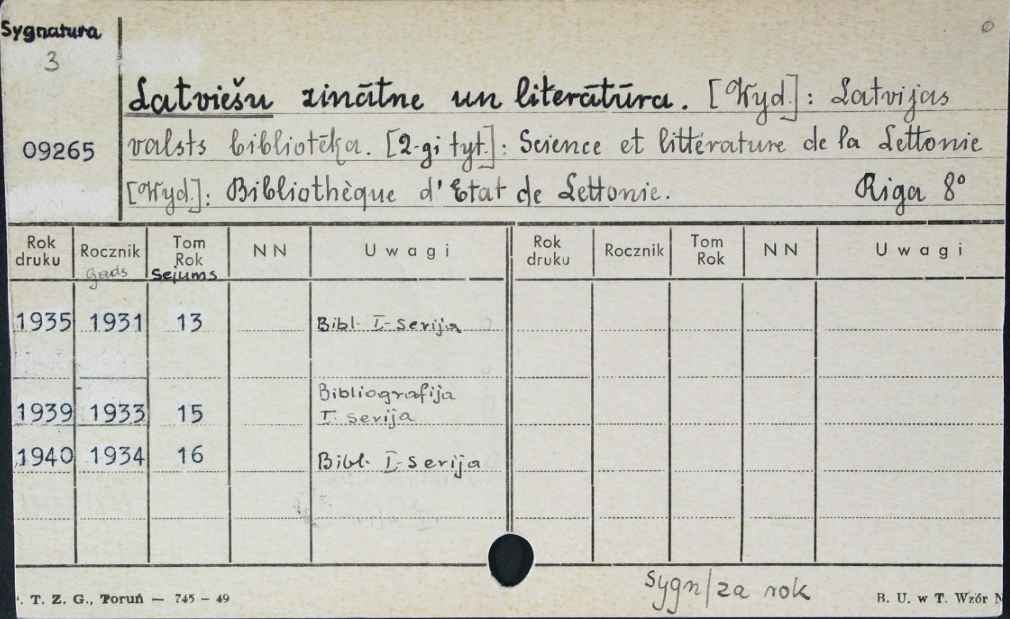 Sygnatura
3
09265
Latviešu zinātne un literātūra. [Wyd.]: Latvijas
valsts bibliotēka. [2-gi tyt.]: Science et littérature de la Lettonie
[Wyd.]: Bibliothèque d'Etat de Lettonie. Riga 8°
Rok druku Rocznik Tom Rok NN Uwagi Rok druku Rocznik Tom Rok NN Uwagi
Gads Sējums
1935 1931 13 Bibl. I-Serija
Bibliografija
1939 1933 15 I serija
1940 1934 16 Bibl. I-Serija
Sygn/za rok
. T. Z. G., Toruń — 745 – 49 B. U. w T. Wzór N